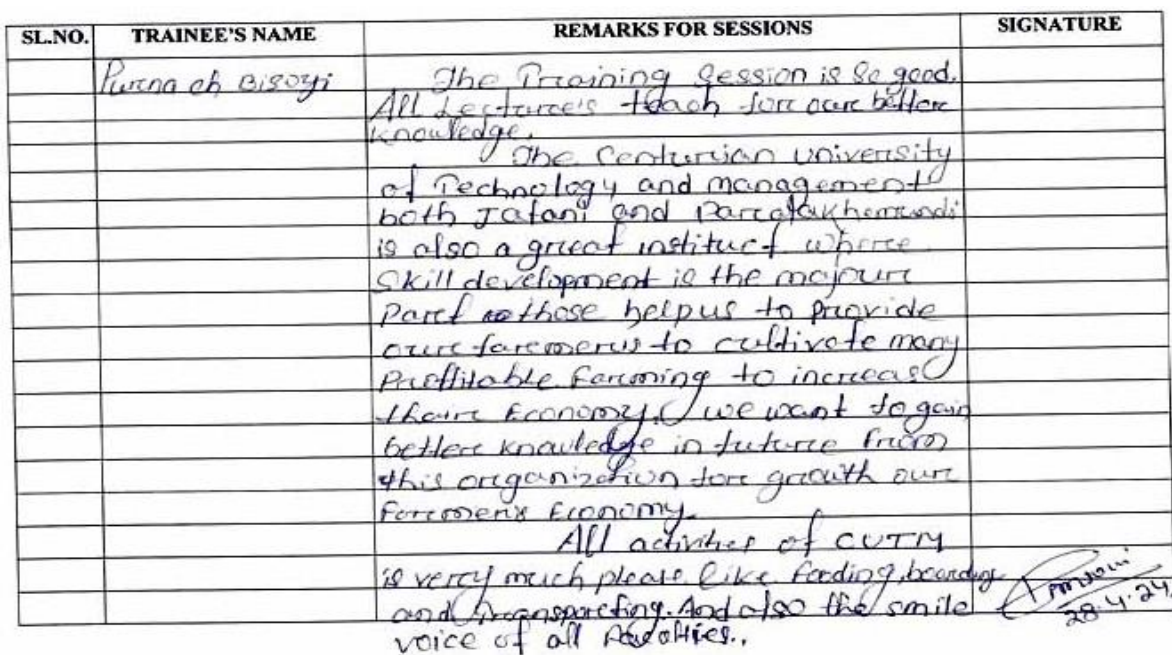 SL.NO. TRAINEE'S NAME REMARKS FOR SESSIONS SIGNATURE
Purna ch Bisoyi The Training Session is so good.
All Lecturer's teach for our better
knowledge.
The Centurian University
of Technology and management
both Jatani and Paralakhemundi
is also a great institut where
Skill development is the majour
Part those help us to Provide
our farmers to cultivate many
Profitable Farming to increas
thair Economy. we want to gain
better knowledge in future from
this organization for growth our
Farmers Economy.
All activities of CUTM
is very much please like feeding, boarding
and transporting. And also the smile
voice of all
28.4.24